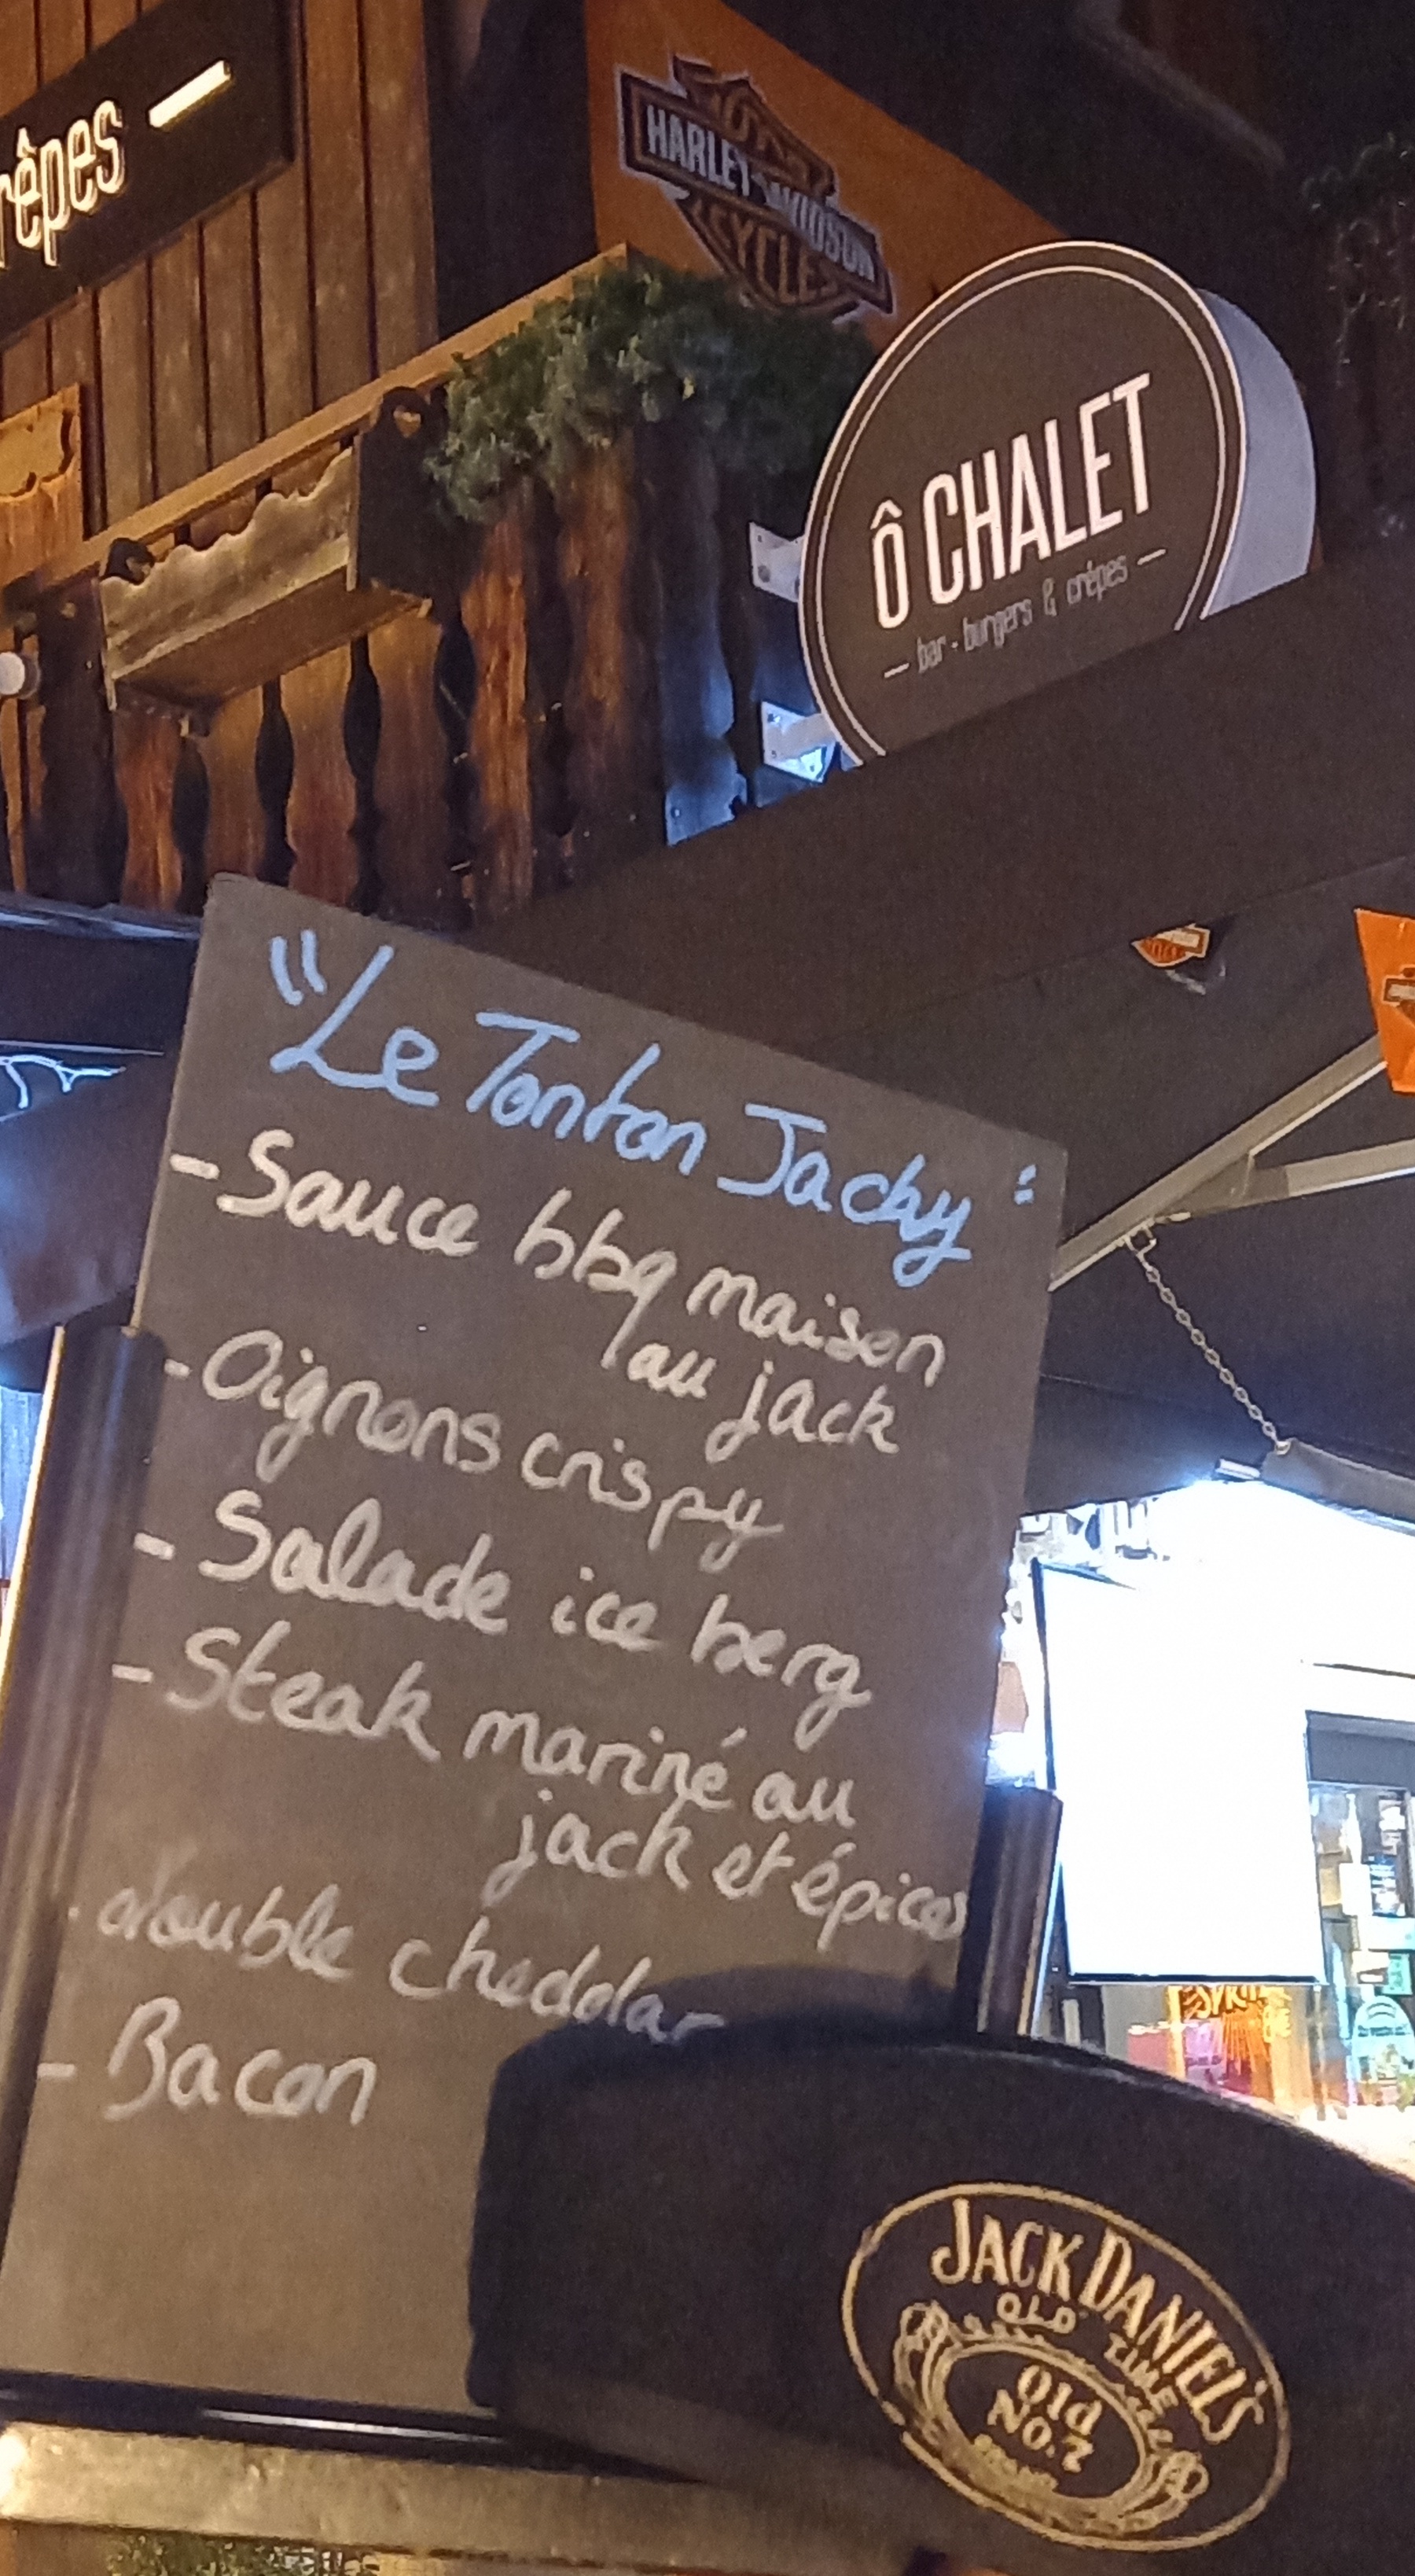 rêpes —
HARLEY-DAVIDSON
CYCLES
Ô CHALET
— bar - burgers & crêpes —
"Le Tonton Jacky"
- Sauce bbq maison
au jack
- Oignons crispy
- Salade ice berg
- Steak mariné au
jack et épices
- double cheddar
- Bacon
JACK DANIEL'S
OLD TIME
Old
No.7